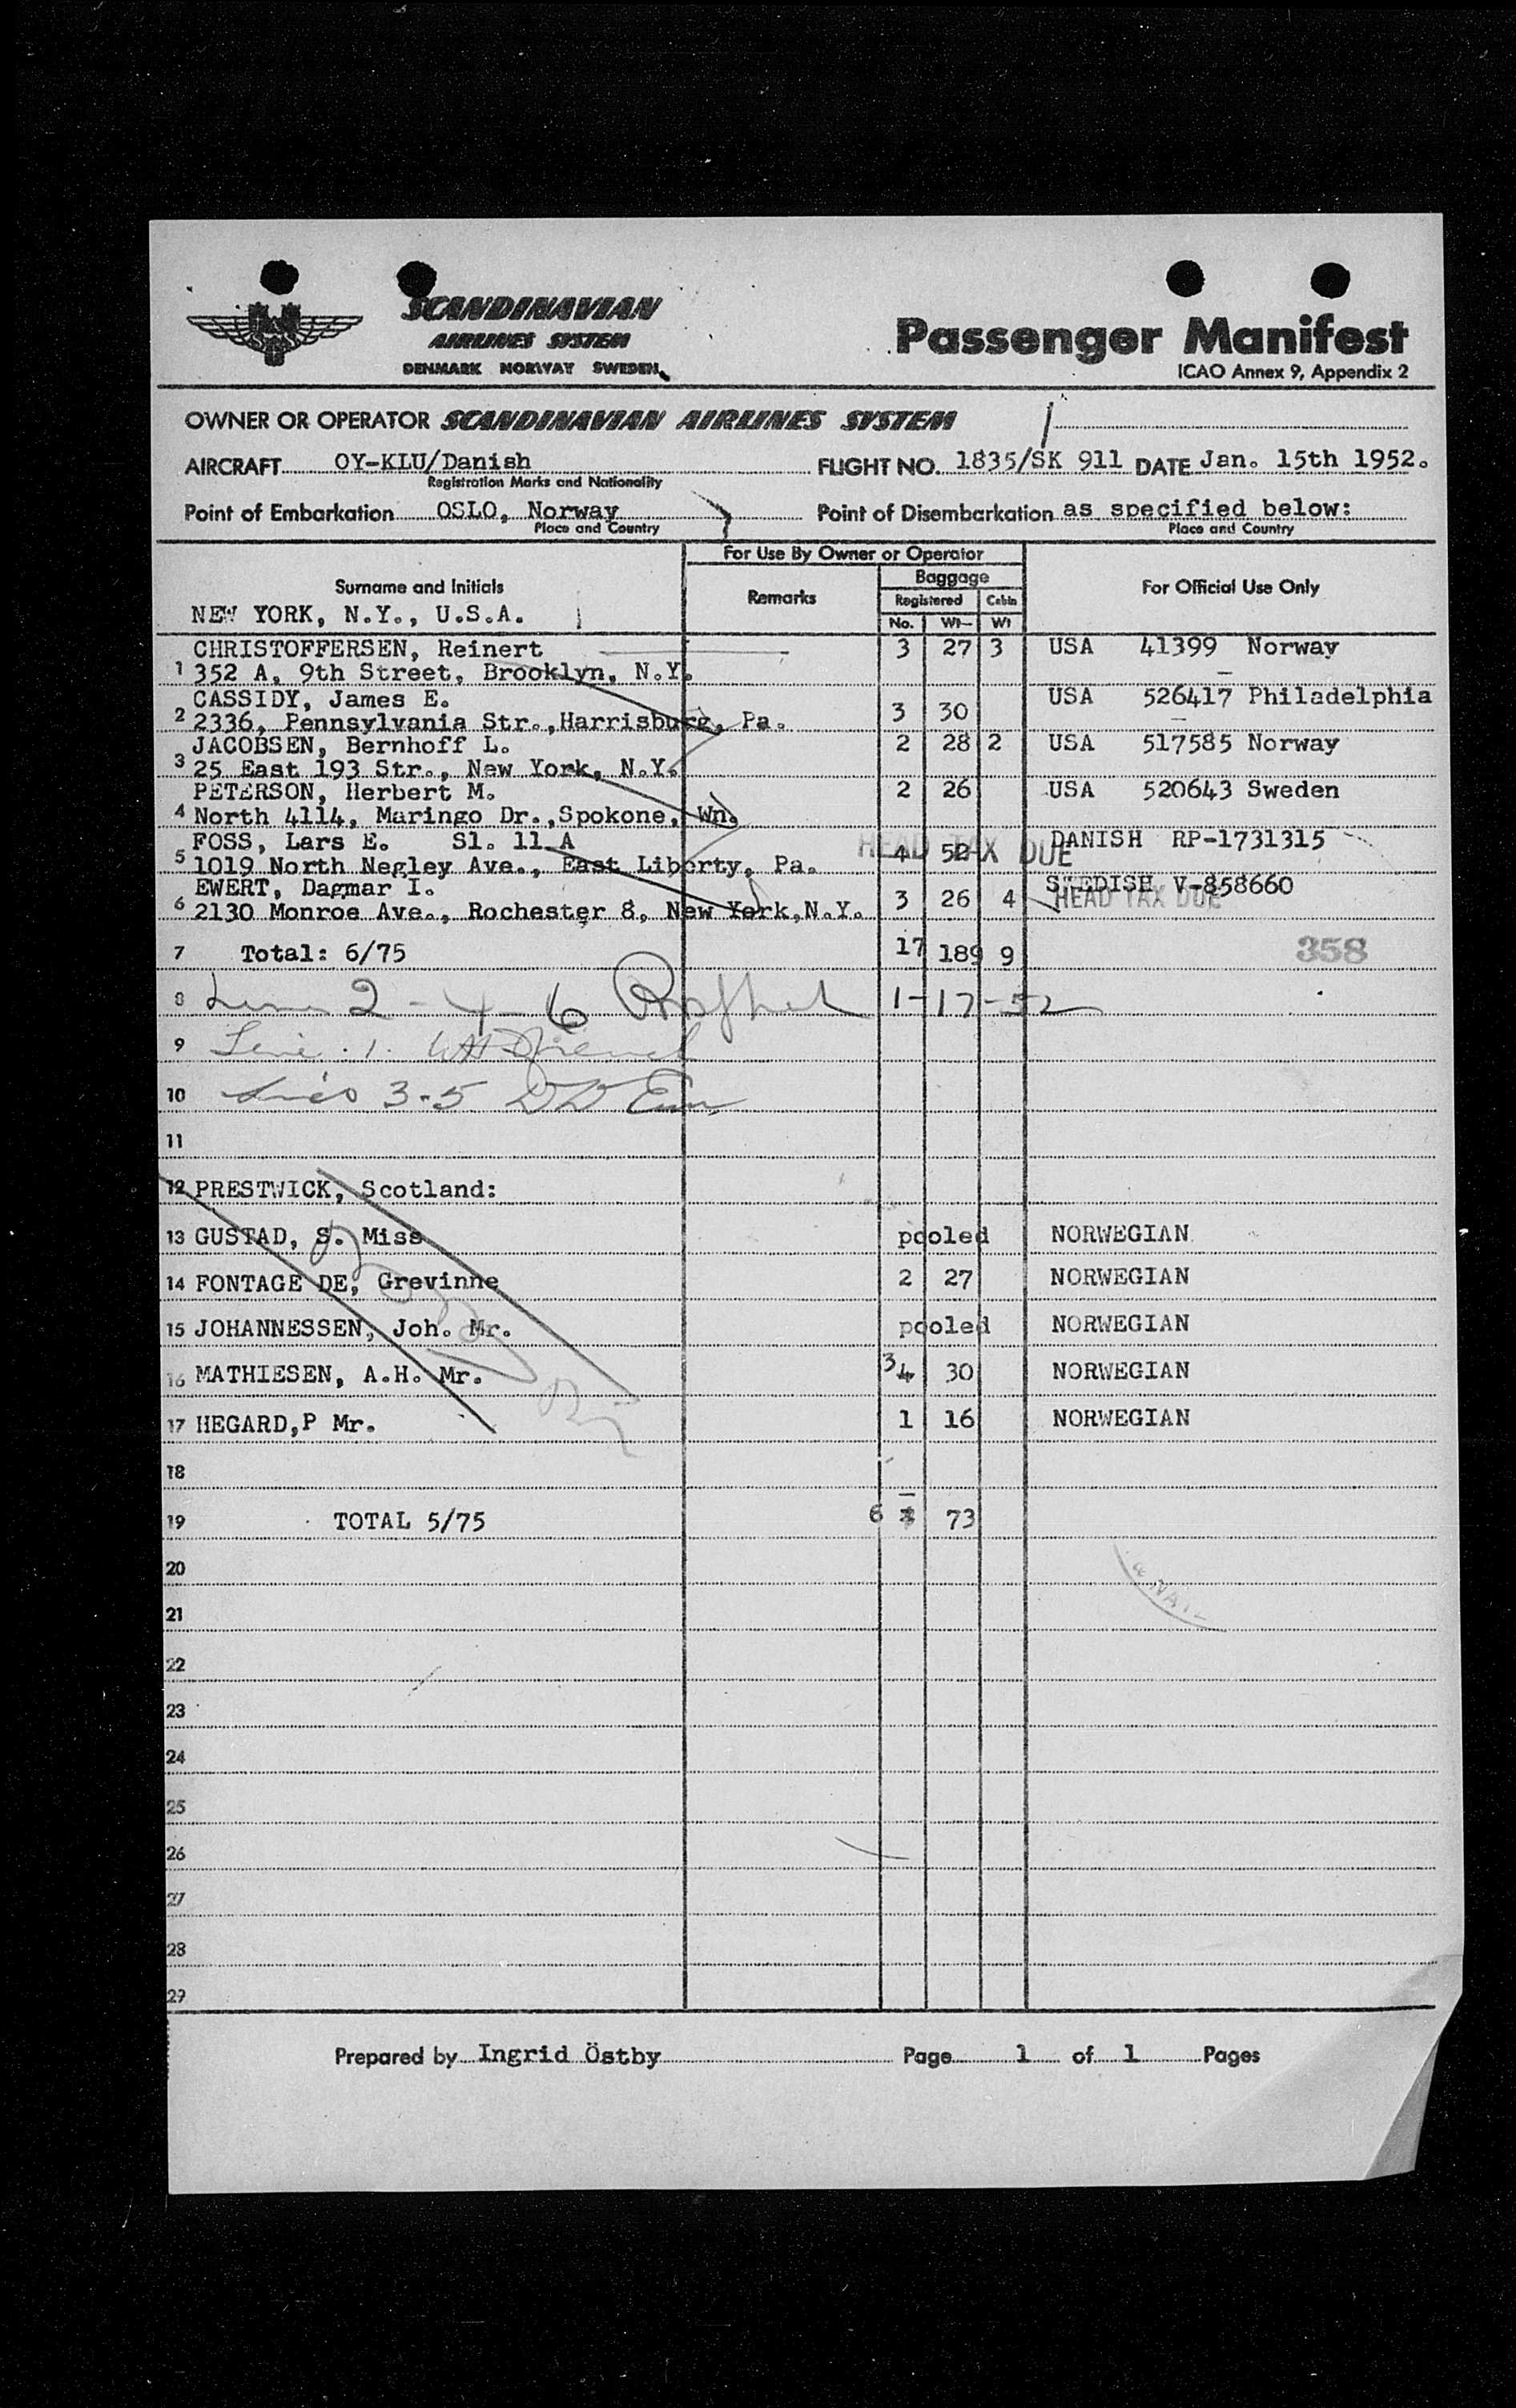 SCANDINAVIAN
AIRLINES SYSTEM
DENMARK NORWAY SWEDEN
Passenger Manifest
ICAO Annex 9, Appendix 2
OWNER OR OPERATOR SCANDINAVIAN AIRLINES SYSTEM
AIRCRAFT OY-KLU/Danish FLIGHT NO. 1835/SK 911 DATE Jan. 15th 1952.
Registration Marks and Nationality
Point of Embarkation OSLO, Norway Point of Disembarkation as specified below:
Place and Country Place and Country
For Use By Owner or Operator
Surname and Initials Remarks Baggage For Official Use Only
Registered Cabin
NEW YORK, N.Y., U.S.A. No. Wt Wt
CHRISTOFFERSEN, Reinert 3 27 3 USA 41399 Norway
1 352 A, 9th Street, Brooklyn, N.Y.
CASSIDY, James E. 3 30 USA 526417 Philadelphia
2 2336, Pennsylvania Str.,Harrisburg, Pa.
JACOBSEN, Bernhoff L. 2 28 2 USA 517585 Norway
3 25 East 193 Str., New York, N.Y.
PETERSON, Herbert M. 2 26 USA 520643 Sweden
4 North 4114, Maringo Dr.,Spokone, Wn.
FOSS, Lars E. Sl. 11 A 4 52 DANISH RP-1731315
HEAD TAX DUE
5 1019 North Negley Ave., East Liberty, Pa.
EWERT, Dagmar I. 3 26 4 SWEDISH V-858660
HEAD TAX DUE
6 2130 Monroe Ave., Rochester 8, New York,N.Y.
7 Total: 6/75 17 189 9 358
8 2 - 4 - 6 1-17-52
9 Line 1.
10 3-5
11
12 PRESTWICK, Scotland:
13 GUSTAD, S. Miss pooled NORWEGIAN
14 FONTAGE DE, Grevinne 2 27 NORWEGIAN
15 JOHANNESSEN, Joh. Mr. pooled NORWEGIAN
16 MATHIESEN, A.H. Mr. 3 4 30 NORWEGIAN
17 HEGARD,P Mr. 1 16 NORWEGIAN
18
19 TOTAL 5/75 6 73
20
21
22
23
24
25
26
27
28
29
Prepared by Ingrid Östby Page 1 of 1 Pages